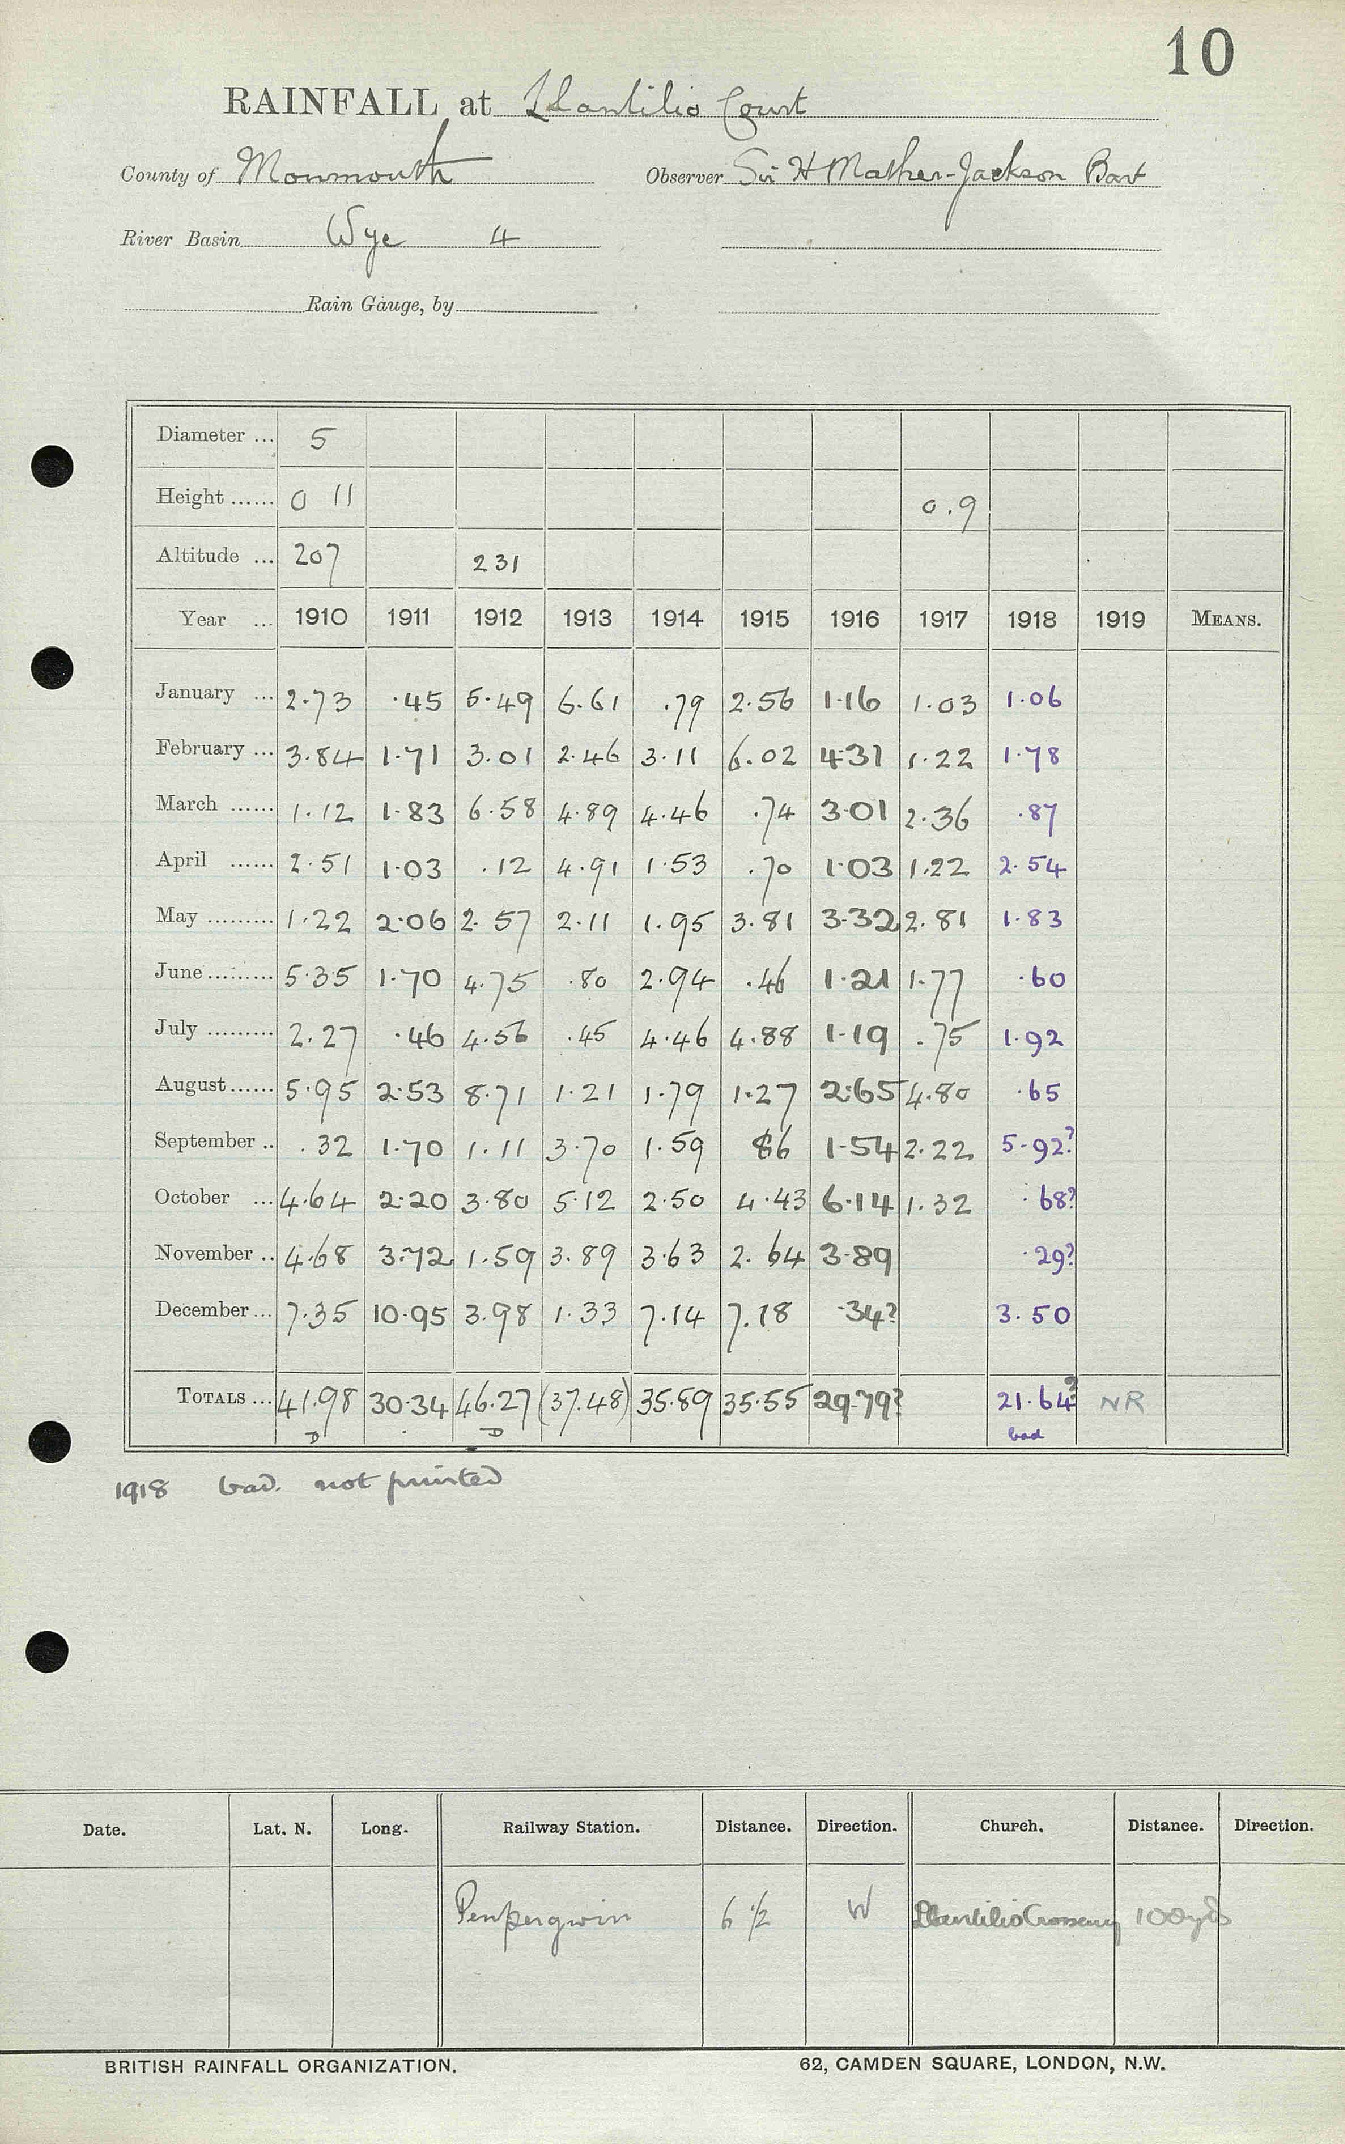 10
RAINFALL at Llantilio Court
County of Monmouth Observer Sir H Mather-Jackson Bart
River Basin Wye 4
Rain Gauge, by
Diameter ... 5
Height ...... 0 11 0.9
Altitude ... 207 231
Year ... 1910 1911 1912 1913 1914 1915 1916 1917 1918 1919 MEANS.
January ... 2.73 .45 5.49 6.61 .79 2.56 1.16 1.03 1.06
February ... 3.84 1.71 3.01 2.46 3.11 6.02 4.31 1.22 1.78
March ...... 1.12 1.83 6.58 4.89 4.46 .74 3.01 2.36 .87
April ...... 2.51 1.03 .12 4.91 1.53 .70 1.03 1.22 2.54
May ......... 1.22 2.06 2.57 2.11 1.95 3.81 3.32 2.81 1.83
June ......... 5.35 1.70 4.75 .80 2.94 .46 1.21 1.77 .60
July ......... 2.27 .46 4.56 .45 4.46 4.88 1.19 .75 1.92
August ...... 5.95 2.53 8.71 1.21 1.79 1.27 2.65 4.80 .65
September .. .32 1.70 1.11 3.70 1.59 86 1.54 2.22 5.92?
October ... 4.64 2.20 3.80 5.12 2.50 4.43 6.14 1.32 .68?
November .. 4.68 3.72 1.59 3.89 3.63 2.64 3.89 .29?
December ... 7.35 10.95 3.98 1.33 7.14 7.18 .34? 3.50
TOTALS ... 41.98 30.34 46.27 (37.48) 35.89 35.55 29.79? 21.64? NR
D D bad
1918 bad. not printed
Date. Lat. N. Long. Railway Station. Distance. Direction. Church. Distance. Direction.
Penpergwin 6 1/2 W Llantilio Crossenny 100 yds
BRITISH RAINFALL ORGANIZATION. 62, CAMDEN SQUARE, LONDON, N.W.